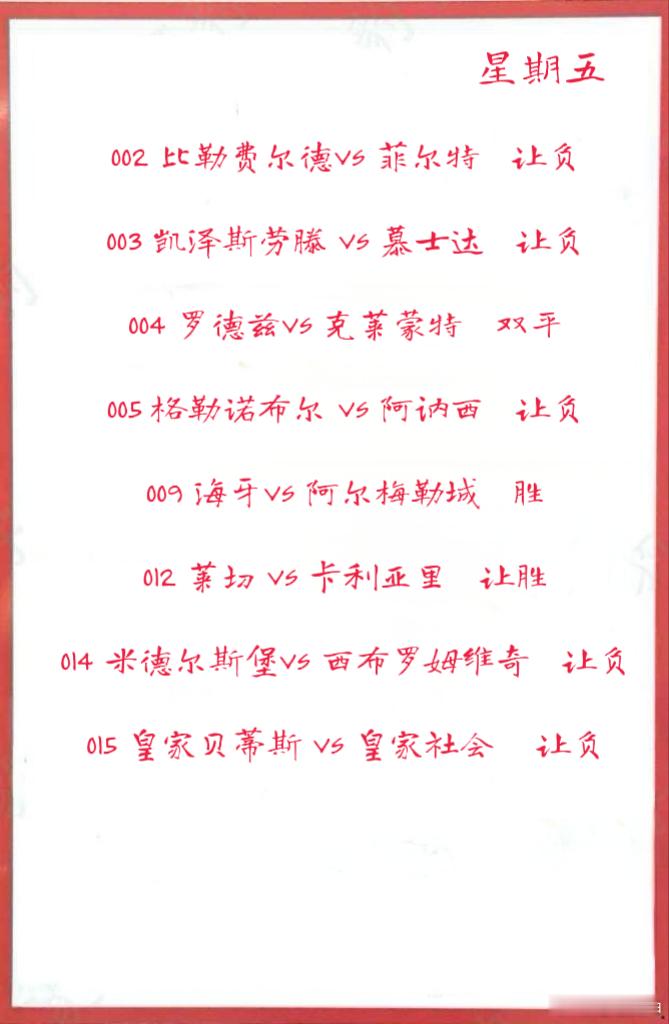 星期五
002 比勒费尔德vs 菲尔特 让负
003 凯泽斯劳滕 vs 慕士达 让负
004 罗德兹vs 克莱蒙特 双平
005 格勒诺布尔 vs 阿讷西 让负
009 海牙vs 阿尔梅勒城 胜
012 莱切 vs 卡利亚里 让胜
014 米德尔斯堡vs 西布罗姆维奇 让负
015 皇家贝蒂斯 vs 皇家社会 让负